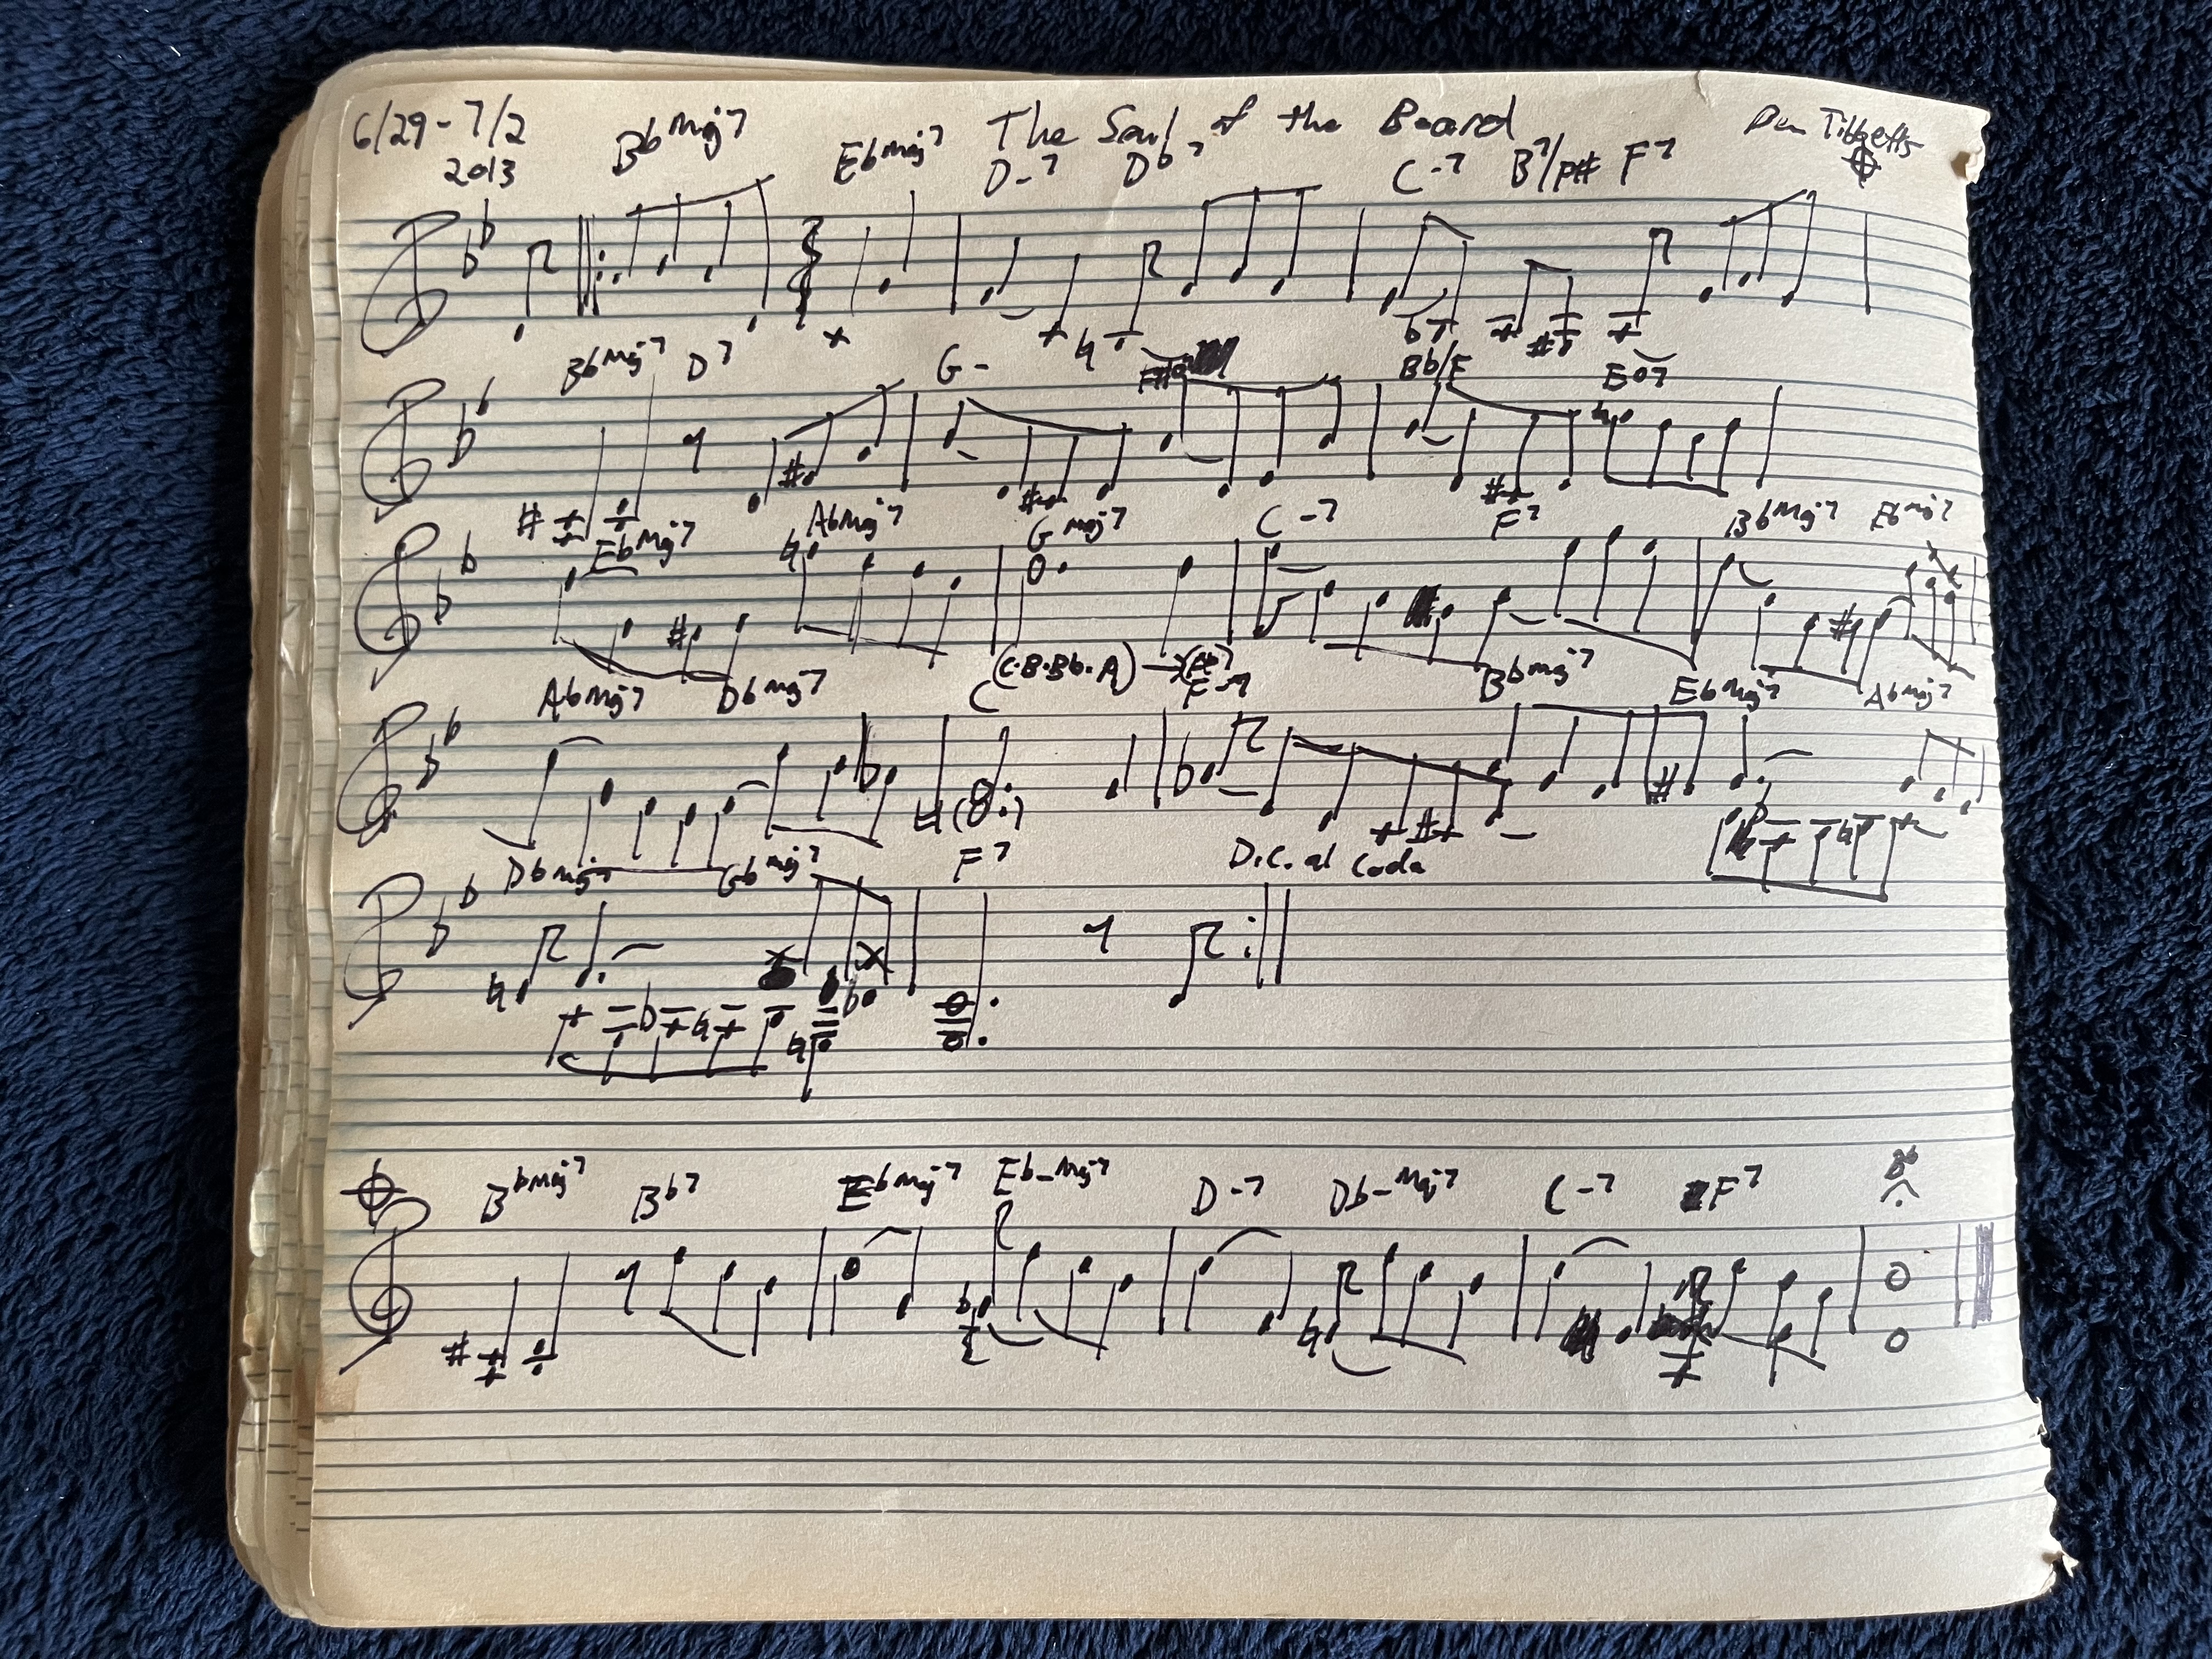 6/29-7/2 The Soul of the Board Dan Tibbetts
2013 BbMaj7 EbMaj7 D-7 Db7 C-7 B7/F# F7
BbMaj7 D7 G- Bb/F Eo7
EbMaj7 AbMaj7 Gmaj7 C-7 F7 BbMaj7 EbMaj7
(C·B·Bb·A)
AbMaj7 DbMaj7 C F-7 BbMaj7 EbMaj7 AbMaj7
DbMaj7 GbMaj7 F7 D.C. al Coda
BbMaj7 Bb7 EbMaj7 Eb-Maj7 D-7 Db-Maj7 C-7 F7 Bb